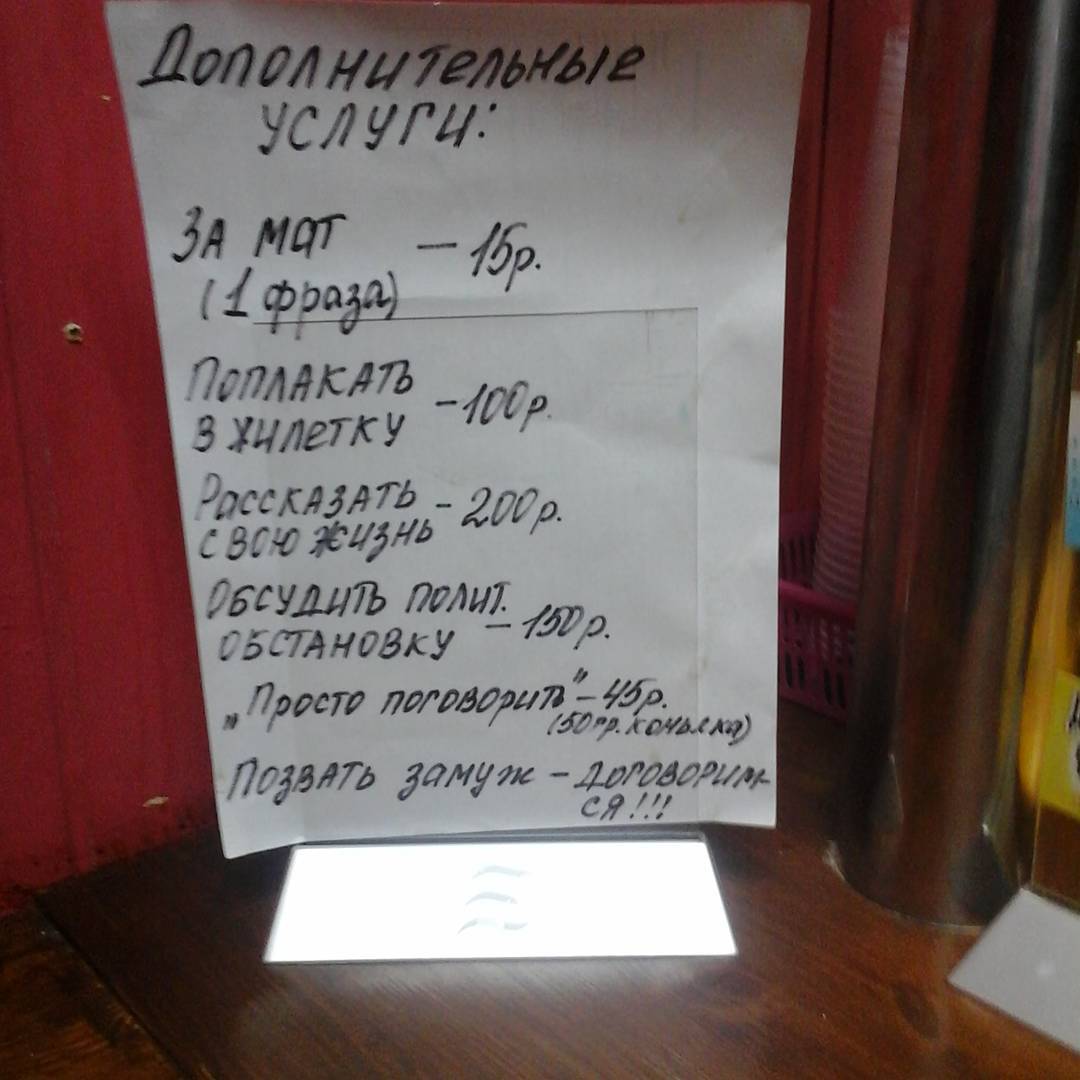 Дополнительные
услуги:
За мат - 15р.
(1 фраза)
Поплакать
в жилетку - 100р.
Рассказать
свою жизнь - 200р.
Обсудить полит.
обстановку - 150р.
„Просто поговорить" - 45р.
(50 гр. коньяка)
Позвать замуж - договорим-
ся!!!